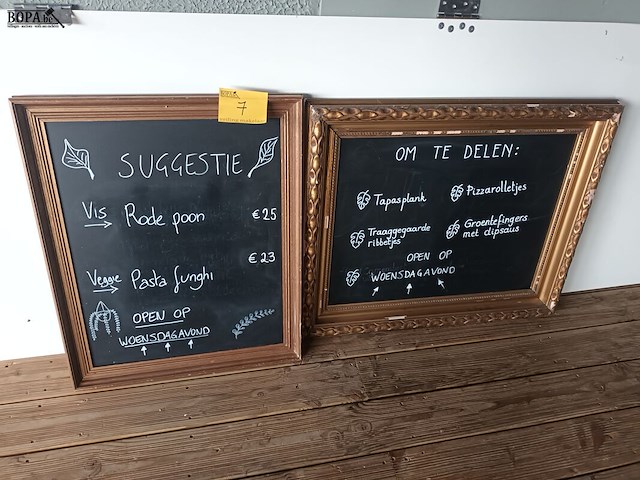 BOPA
7
SUGGESTIE
Vis Rode poon €25
€23
Veggie Pasta funghi
OPEN OP
WOENSDAGAVOND
OM TE DELEN:
Tapasplank
Pizzarolletjes
Traaggegaarde
ribbetjes
Groentefingers
met dipsaus
OPEN OP
WOENSDAGAVOND